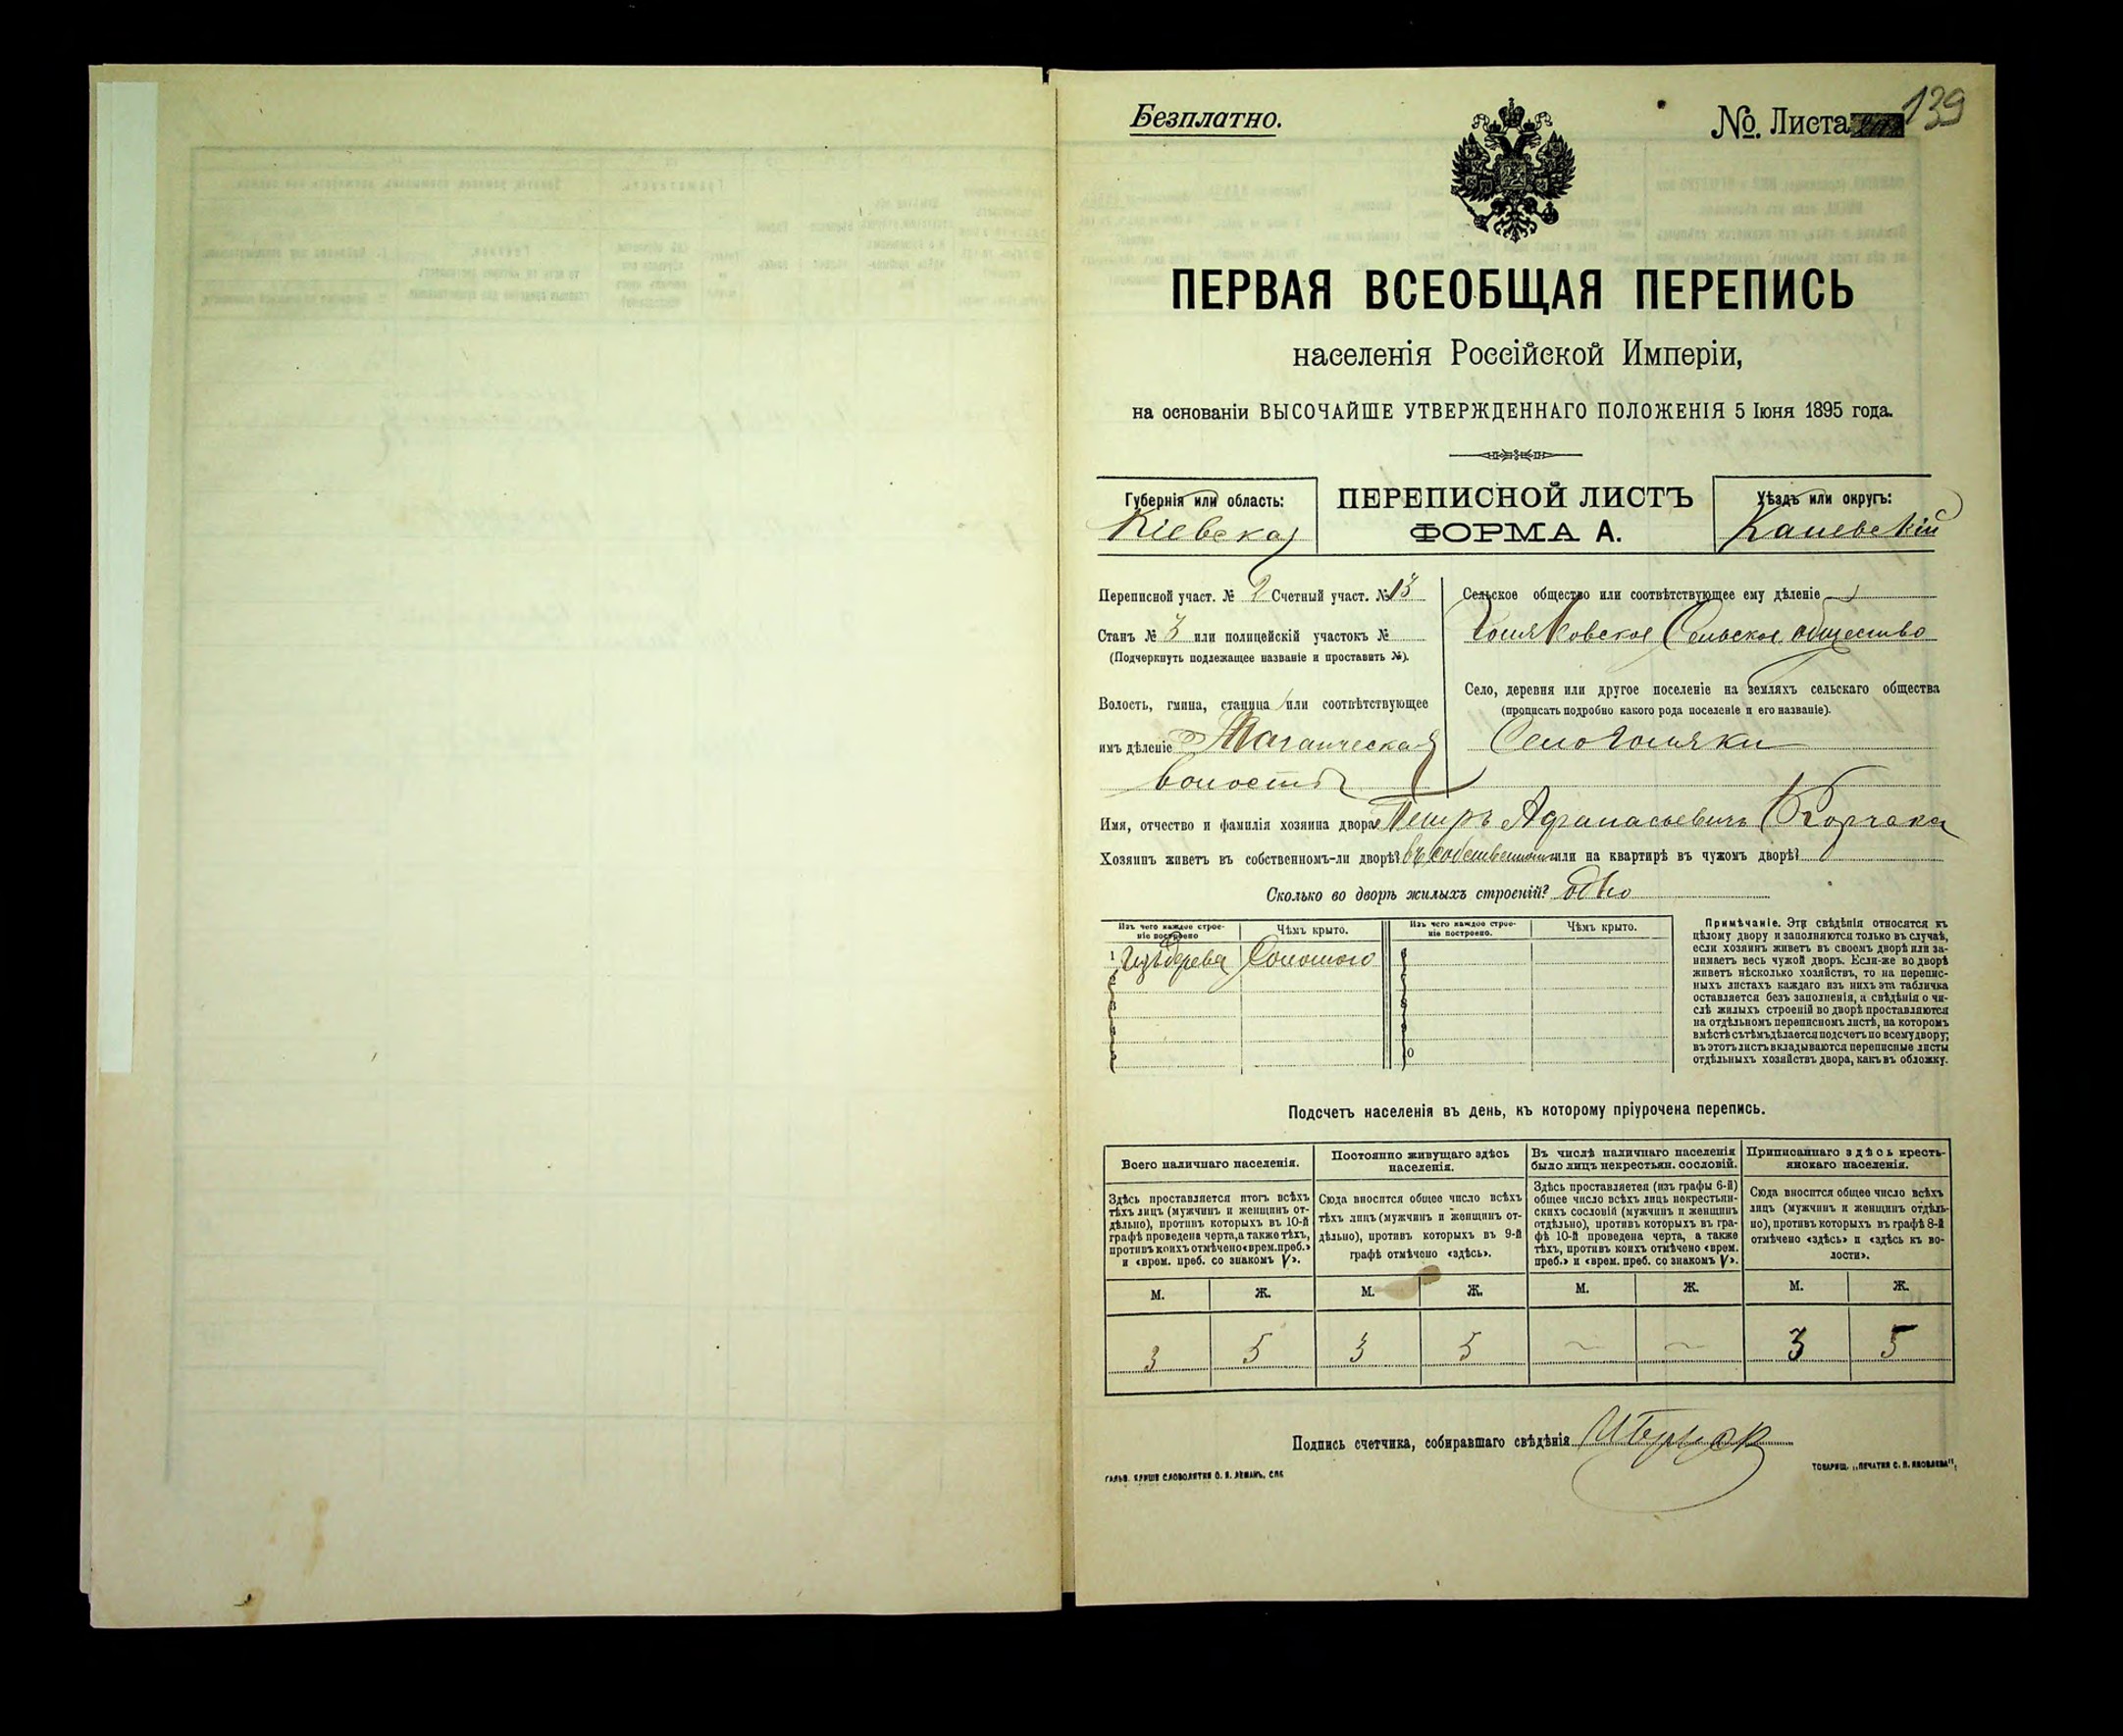 Безплатно.
№. Листа 139
ПЕРВАЯ ВСЕОБЩАЯ ПЕРЕПИСЬ
населенія Россійской Имперіи,
на основаніи ВЫСОЧАЙШЕ УТВЕРЖДЕННАГО ПОЛОЖЕНІЯ 5 Іюня 1895 года.
Губернія или область:
Кіевская
ПЕРЕПИСНОЙ ЛИСТЪ
ФОРМА А.
Уѣздъ или округъ:
Каневскій
Переписной участ. № 2 Счетный участ. № 13
Станъ № 3 или полицейскій участокъ №
(Подчеркнуть подлежащее названіе и проставить №).
Волость, гмина, станица или соотвѣтствующее
имъ дѣленіе Таганческая
волость
Сельское общество или соотвѣтствующее ему дѣленіе
Голяковское Сельское общество
Село, деревня или другое поселеніе на земляхъ сельскаго общества
(прописать подробно какого рода поселеніе и его названіе).
Село Голяки
Имя, отчество и фамилія хозяина двора Петръ Афанасьевичъ Корчака
Хозяинъ живетъ въ собственномъ-ли дворѣ? въ собственномъ или на квартирѣ въ чужомъ дворѣ?
Сколько во дворѣ жилыхъ строеній? одно
Изъ чего каждое строе-
ніе построено
Чѣмъ крыто.
Изъ чего каждое строе-
ніе построено.
Чѣмъ крыто.
1 Изъ дерева Соломою
Примѣчаніе. Эти свѣдѣнія относятся къ
цѣлому двору и заполняются только въ случаѣ,
если хозяинъ живетъ въ своемъ дворѣ или за-
нимаетъ весь чужой дворъ. Если-же во дворѣ
живетъ нѣсколько хозяйствъ, то на перепис-
ныхъ листахъ каждаго изъ нихъ эта табличка
оставляется безъ заполненія, а свѣдѣнія о чи-
слѣ жилыхъ строеній во дворѣ проставляются
на отдѣльномъ переписномъ листѣ, на которомъ
вмѣстѣ съ тѣмъ дѣлается подсчетъ по всему двору;
въ этотъ листъ вкладываются переписные листы
отдѣльныхъ хозяйствъ двора, какъ въ обложку.
Подсчетъ населенія въ день, къ которому пріурочена перепись.
Всего наличнаго населенія.
Здѣсь проставляется итогъ всѣхъ
тѣхъ лицъ (мужчинъ и женщинъ от-
дѣльно), противъ которыхъ въ 10-й
графѣ проведена черта, а также тѣхъ,
противъ коихъ отмѣчено «врем. преб.»
и «врем. преб. со знакомъ V».
Постоянно живущаго здѣсь
населенія.
Сюда вносится общее число всѣхъ
тѣхъ лицъ (мужчинъ и женщинъ от-
дѣльно), противъ которыхъ въ 9-й
графѣ отмѣчено «здѣсь».
Въ числѣ наличнаго населенія
было лицъ некрестьян. сословій.
Здѣсь проставляется (изъ графы 6-й)
общее число всѣхъ лицъ некрестьян-
скихъ сословій (мужчинъ и женщинъ
отдѣльно), противъ которыхъ въ гра-
фѣ 10-й проведена черта, а также
тѣхъ, противъ коихъ отмѣчено «врем.
преб.» и «врем. преб. со знакомъ V».
Приписаннаго здѣсь кресть-
янскаго населенія.
Сюда вносится общее число всѣхъ
лицъ (мужчинъ и женщинъ отдѣль-
но), противъ которыхъ въ графѣ 8-й
отмѣчено «здѣсь» и «здѣсь къ во-
лости».
М. Ж. М. Ж. М. Ж. М. Ж.
3 5 3 5 ~ ~ 3 5
Подпись счетчика, собиравшаго свѣдѣнія
ГАЛЬВ. КЛИШЕ СЛОВОЛИТНИ О. И. ЛЕМАНЪ, СПБ
ТОВАРИЩ. „ПЕЧАТНЯ С. П. ЯКОВЛЕВА“,